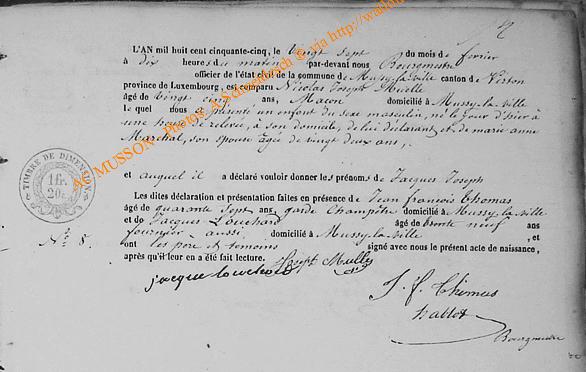 L'AN mil huit cent cinquante-cinq, le vingt sept du mois de février
à dix heures du matin par-devant nous Bourgmestre
officier de l'état civil de la commune de Mussy-la-Ville canton de Virton
province de Luxembourg, est comparu Nicolas Joseph Muelle
âgé de vingt cinq ans, Maçon domicilié à Mussy-la-Ville
lequel nous a présenté un enfant du sexe masculin, né le jour d'hier à
une heure de relevée, à son domicile, de lui déclarant et de marie anne
Maréchal, son épouse âgée de vingt deux ans,
et auquel il a déclaré vouloir donner les prénoms de Jacques Joseph
Les dites déclaration et présentation faites en présence de Jean françois Thomas
âgé de quarante sept ans garde champêtre domicilié à Mussy-la-Ville
et de Jacques Louchard âgé de trente neuf ans
aussi domicilié à Mussy-la-Ville, et
ont les père et témoins signé avec nous le présent acte de naissance,
après qu'il leur en a été fait lecture.
jacque louchard Joseph Muelle
J. f. Thomas
Bourgmestre
N° 8.
TIMBRE DE DIMENSION
1 fr.
20 c.
MUSSON - Photos: A.Schmetbusch © via http://